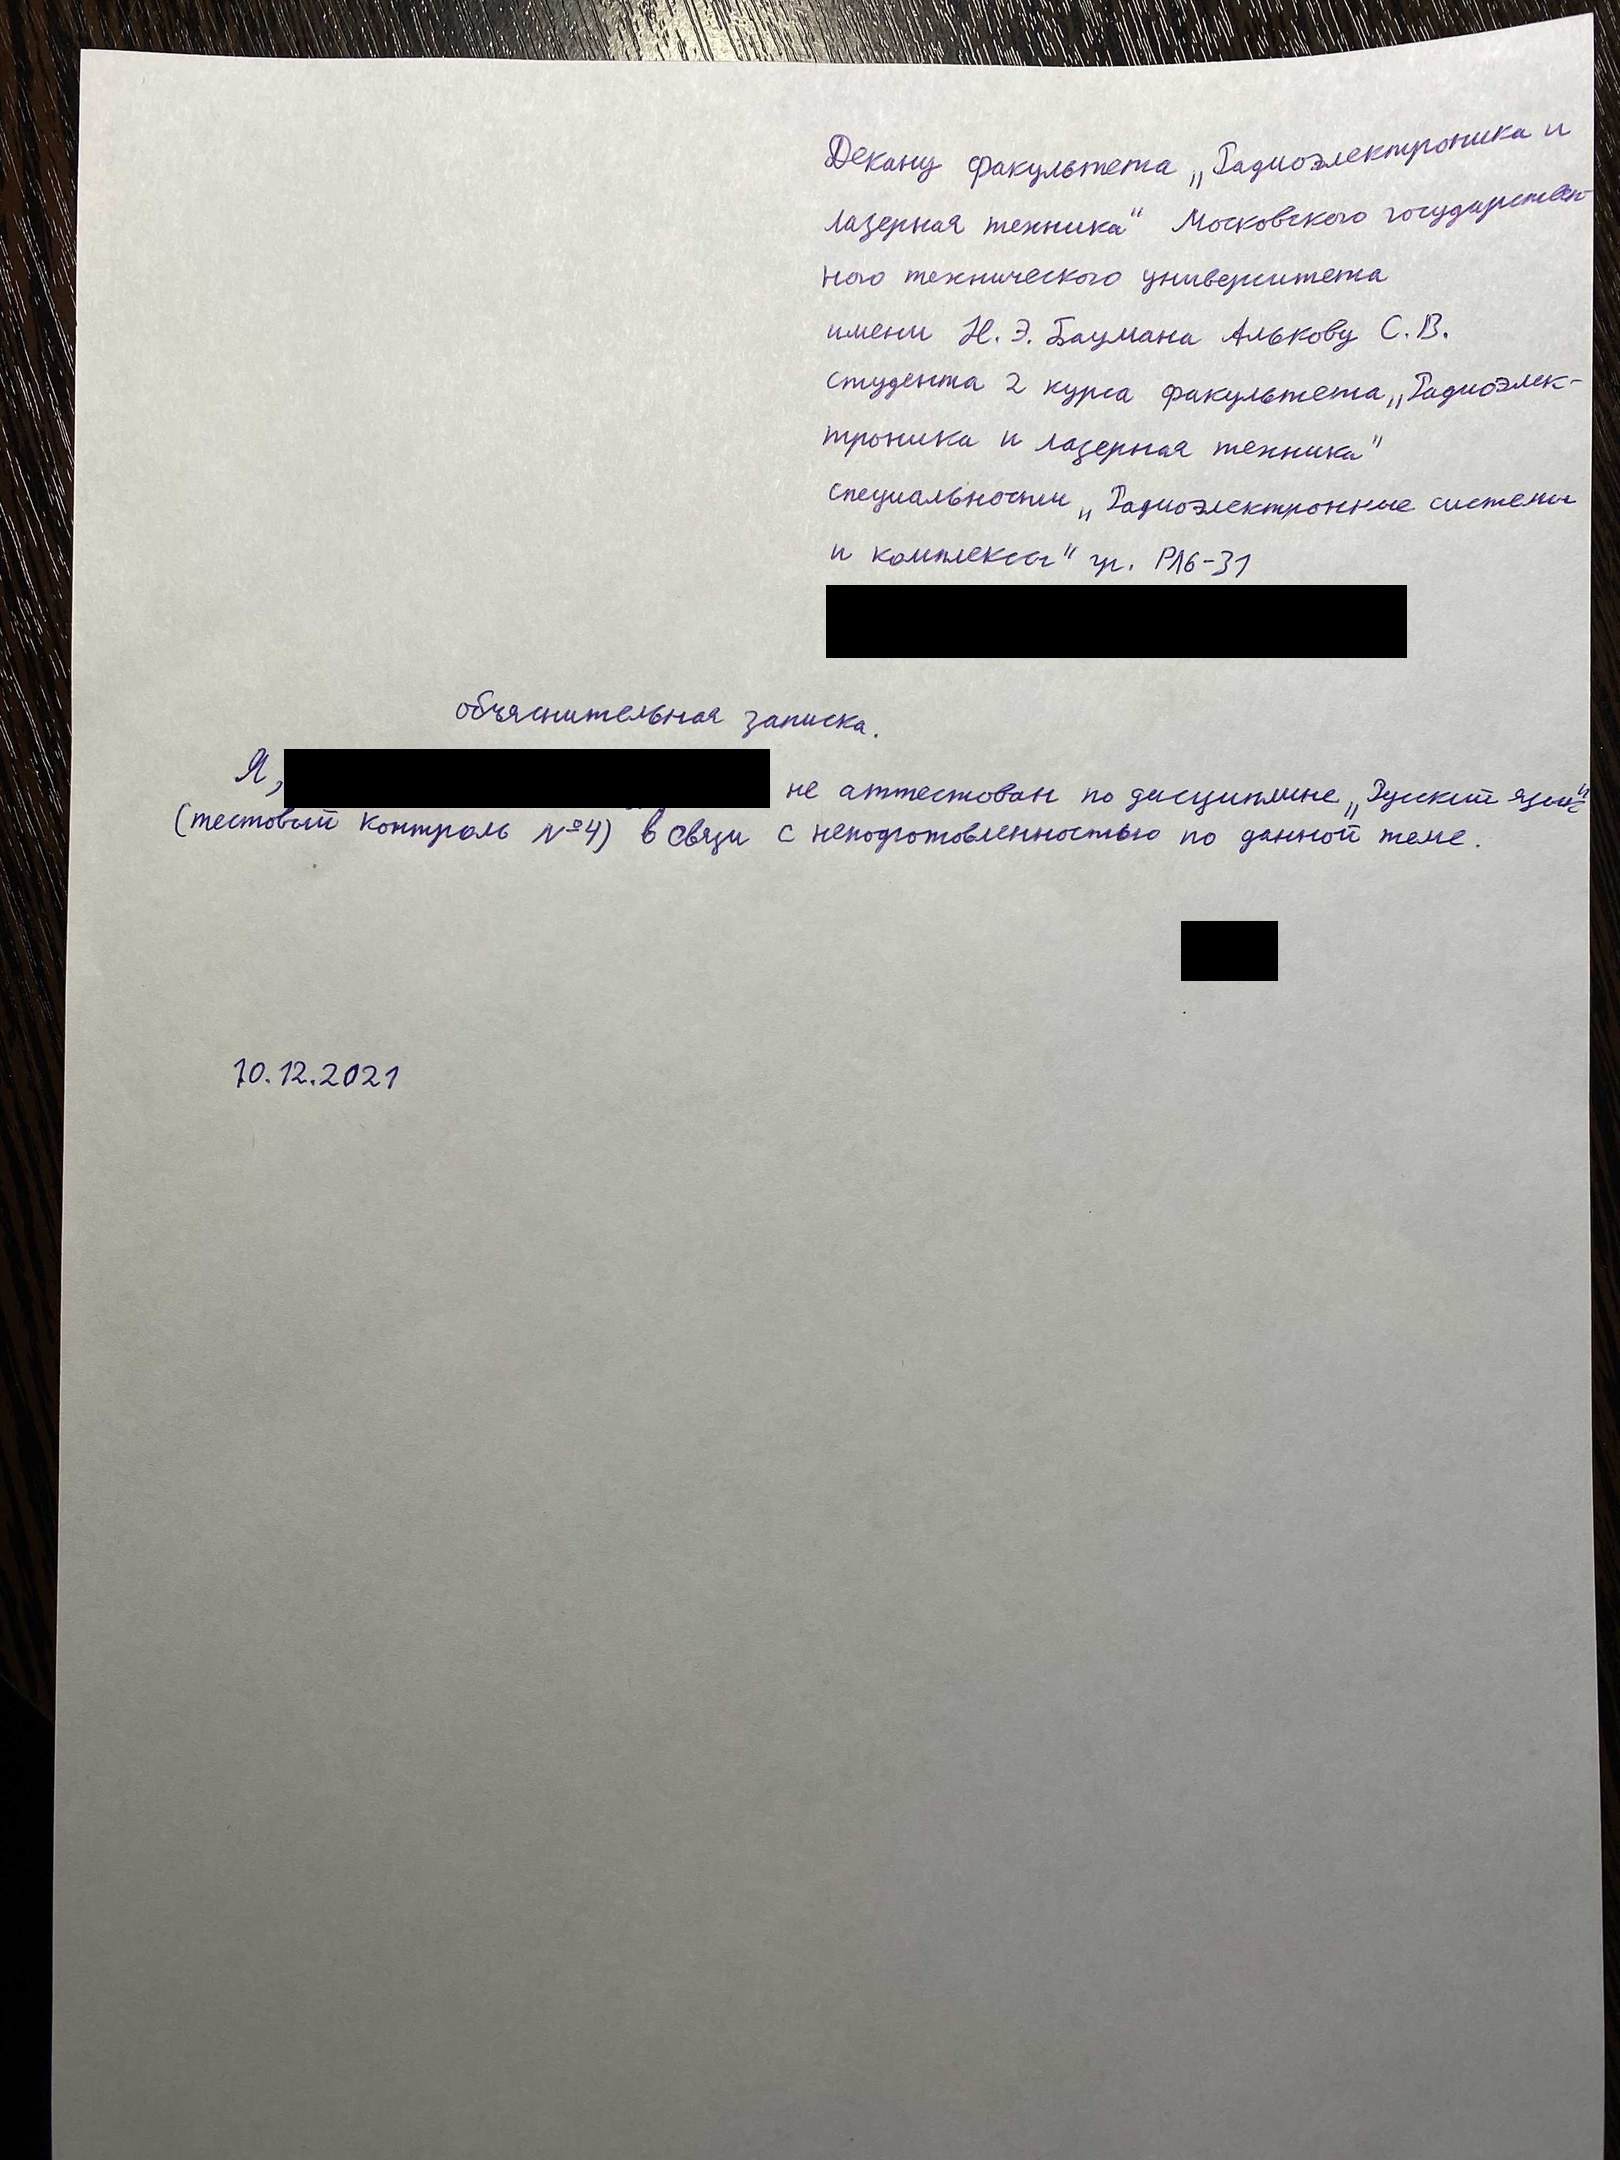 Декану факультета „Радиоэлектроника и
лазерная техника“ Московского государствен-
ного технического университета
имени Н. Э. Баумана Алькову С. В.
студента 2 курса факультета „Радиоэлек-
троника и лазерная техника“
специальности „Радиоэлектронные системы
и комплексы“ гр. РЛ6-31
объяснительная записка.
Я, не аттестован по дисциплине „Русский язык“
(тестовый контроль №4) в связи с неподготовленностью по данной теме.
10.12.2021